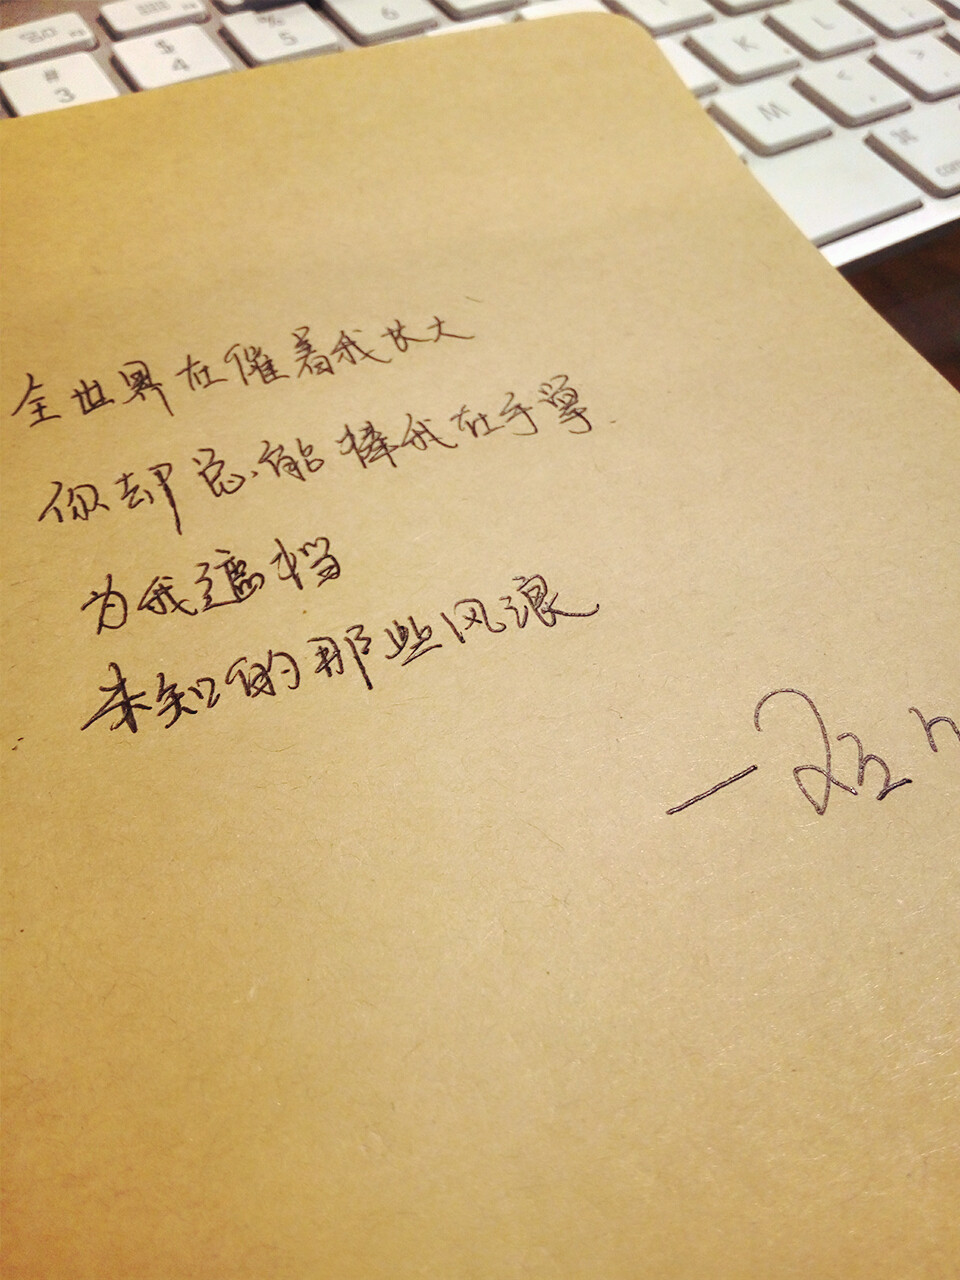 3
$
4
%
5
6
K
L
M
<
,
>
.
⌘
com
全世界在催着我长大
你却总能捧我在手掌
为我遮挡
未知的那些风浪